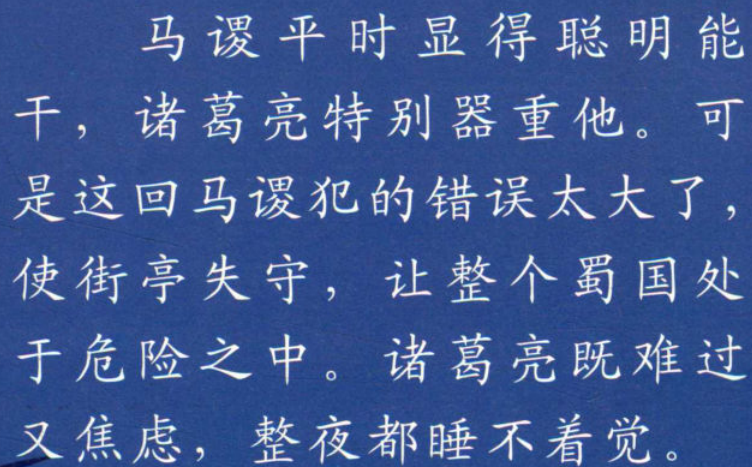 马谡平时显得聪明能
干，诸葛亮特别器重他。可
是这回马谡犯的错误太大了，
使街亭失守，让整个蜀国处
于危险之中。诸葛亮既难过
又焦虑，整夜都睡不着觉。